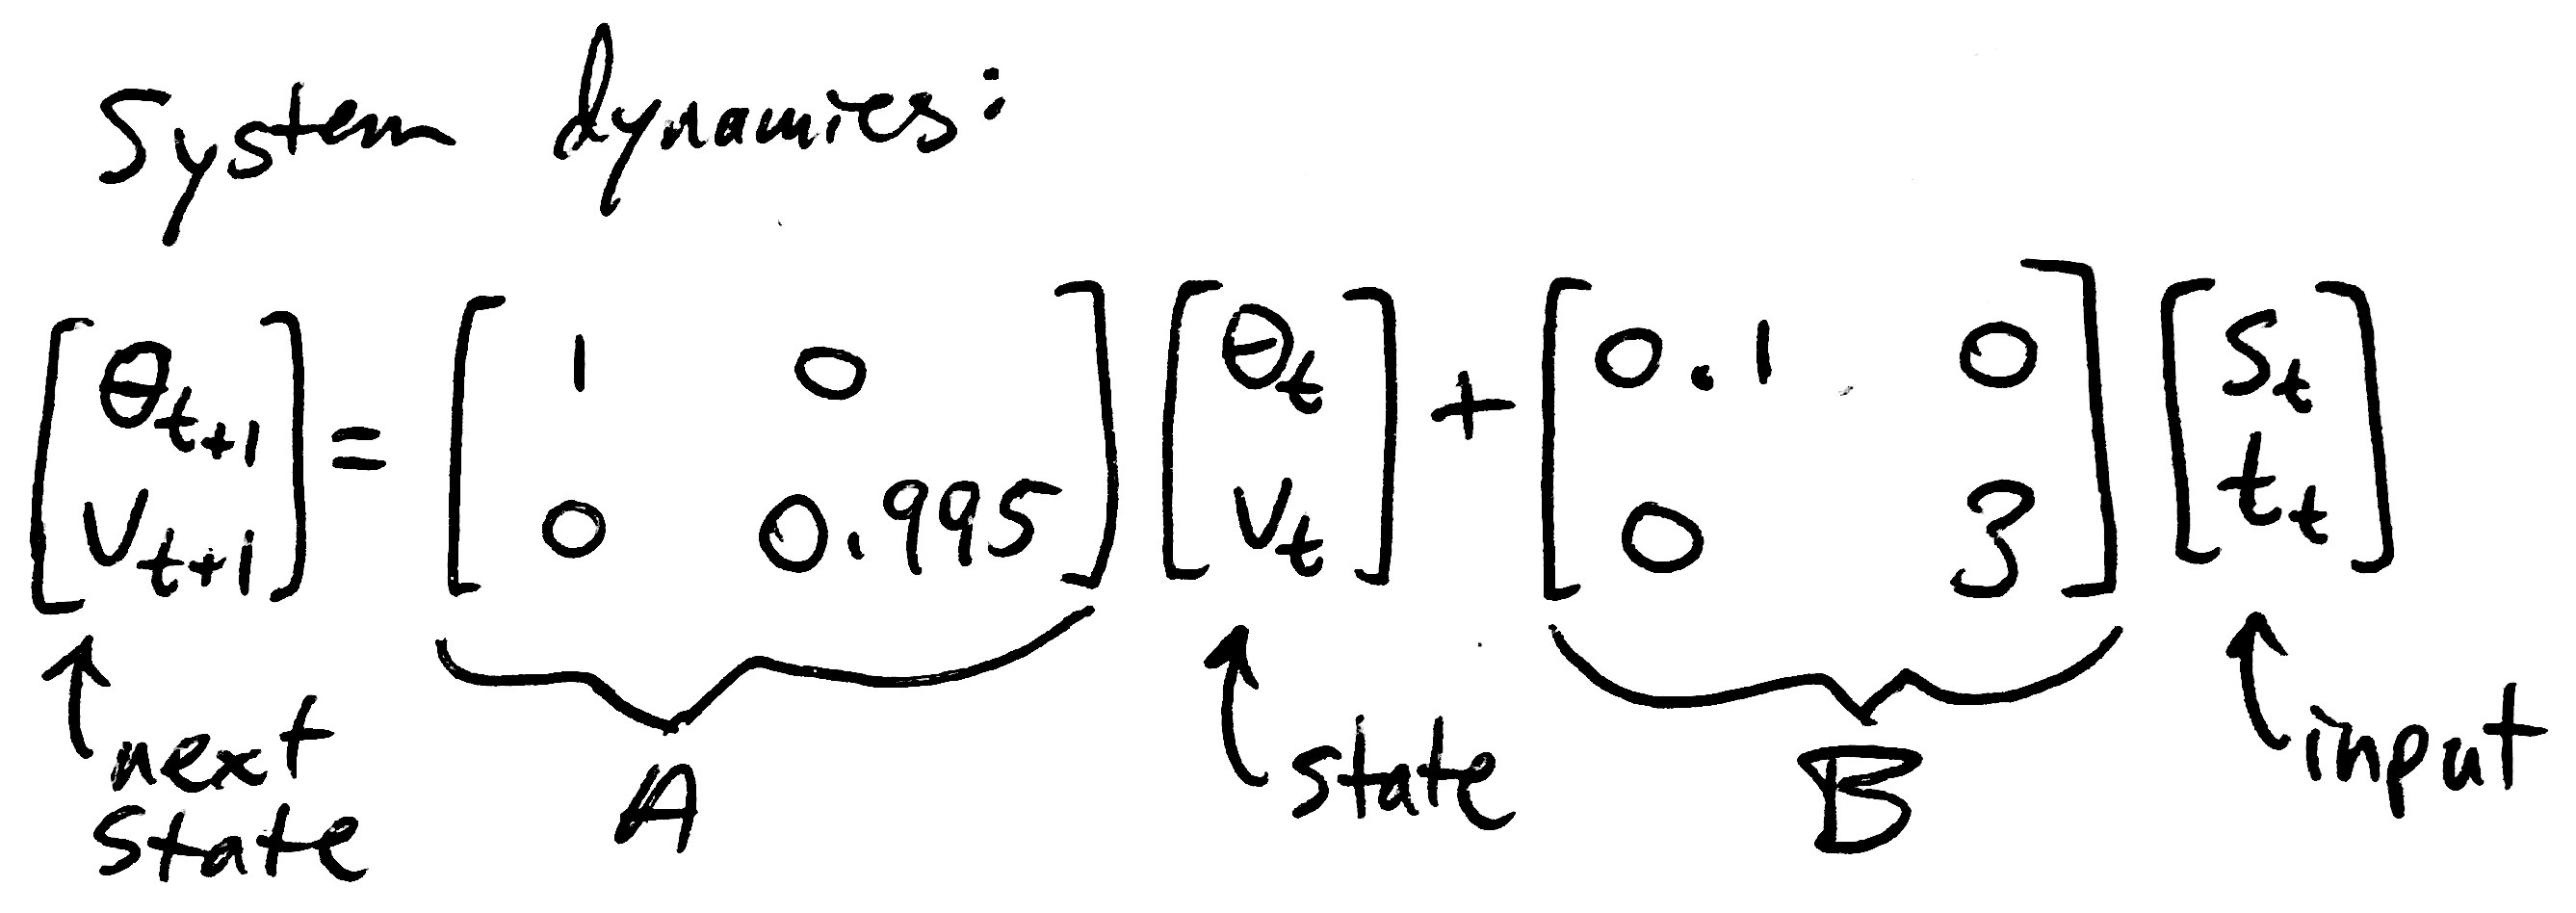 System dynamics:
[θ_{t+1} v_{t+1}] = [1 0; 0 0.995] [θ_t v_t] + [0.1 0; 0 3] [s_t t_t]
next state
A
state
B
input